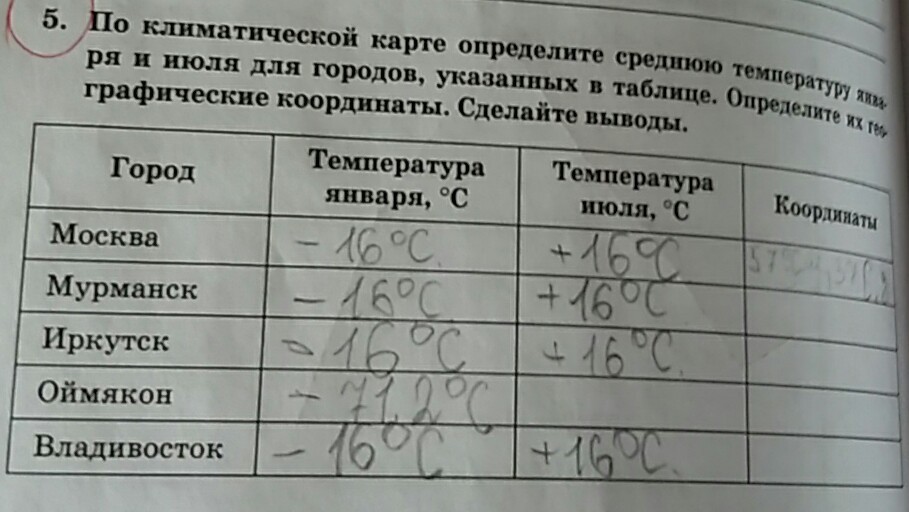 5. По климатической карте определите среднюю температуру янва-
ря и июля для городов, указанных в таблице. Определите их гео-
графические координаты. Сделайте выводы.
Город Температура января, °С Температура июля, °С Координаты
Москва – 16°С. +16°С
Мурманск – 16°С +16°С
Иркутск – 16°С +16°С.
Оймякон – 71,2°С
Владивосток – 16°С +16°С.